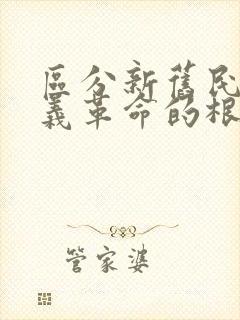 區分新舊民
義革命的根
管家婆